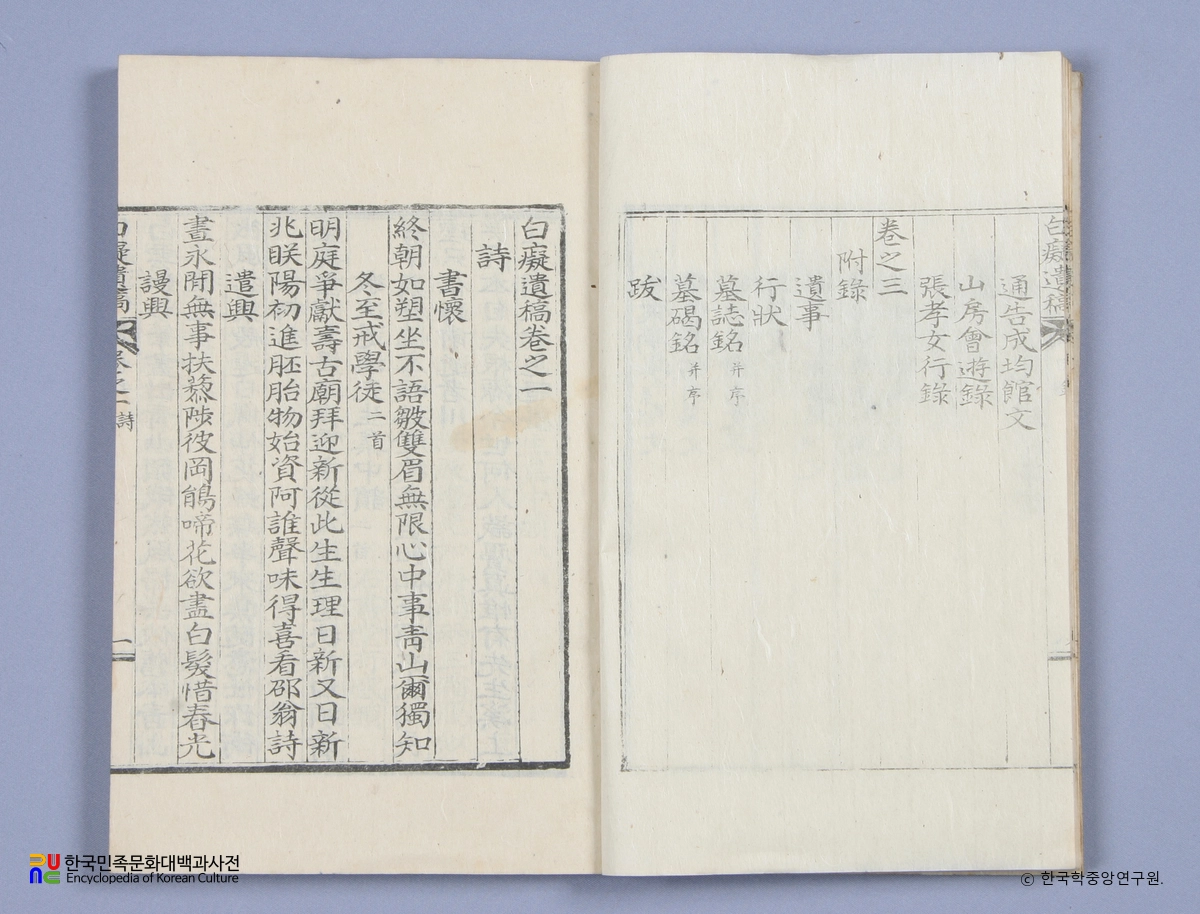 白癡遺稿
通告成均館文
山房會遊錄
張孝女行錄
卷之三
附錄
遺事
行狀
墓誌銘 并序
墓碣銘 并序
跋
白癡遺稿卷之一
詩
書懷
終朝如塑坐不語皺雙眉無限心中事靑山爾獨知
冬至戒學徒 二首
明庭爭獻壽古廟拜迎新從此生生理日新又日新
兆眹陽初進胚胎物始資阿誰聲味得喜看邵翁詩
遣興
晝永閒無事扶藜陟彼岡鵑啼花欲盡白髮惜春光
謾興
白癡遺稿 卷之一 詩 一
한국민족문화대백과사전
Encyclopedia of Korean Culture
© 한국학중앙연구원.